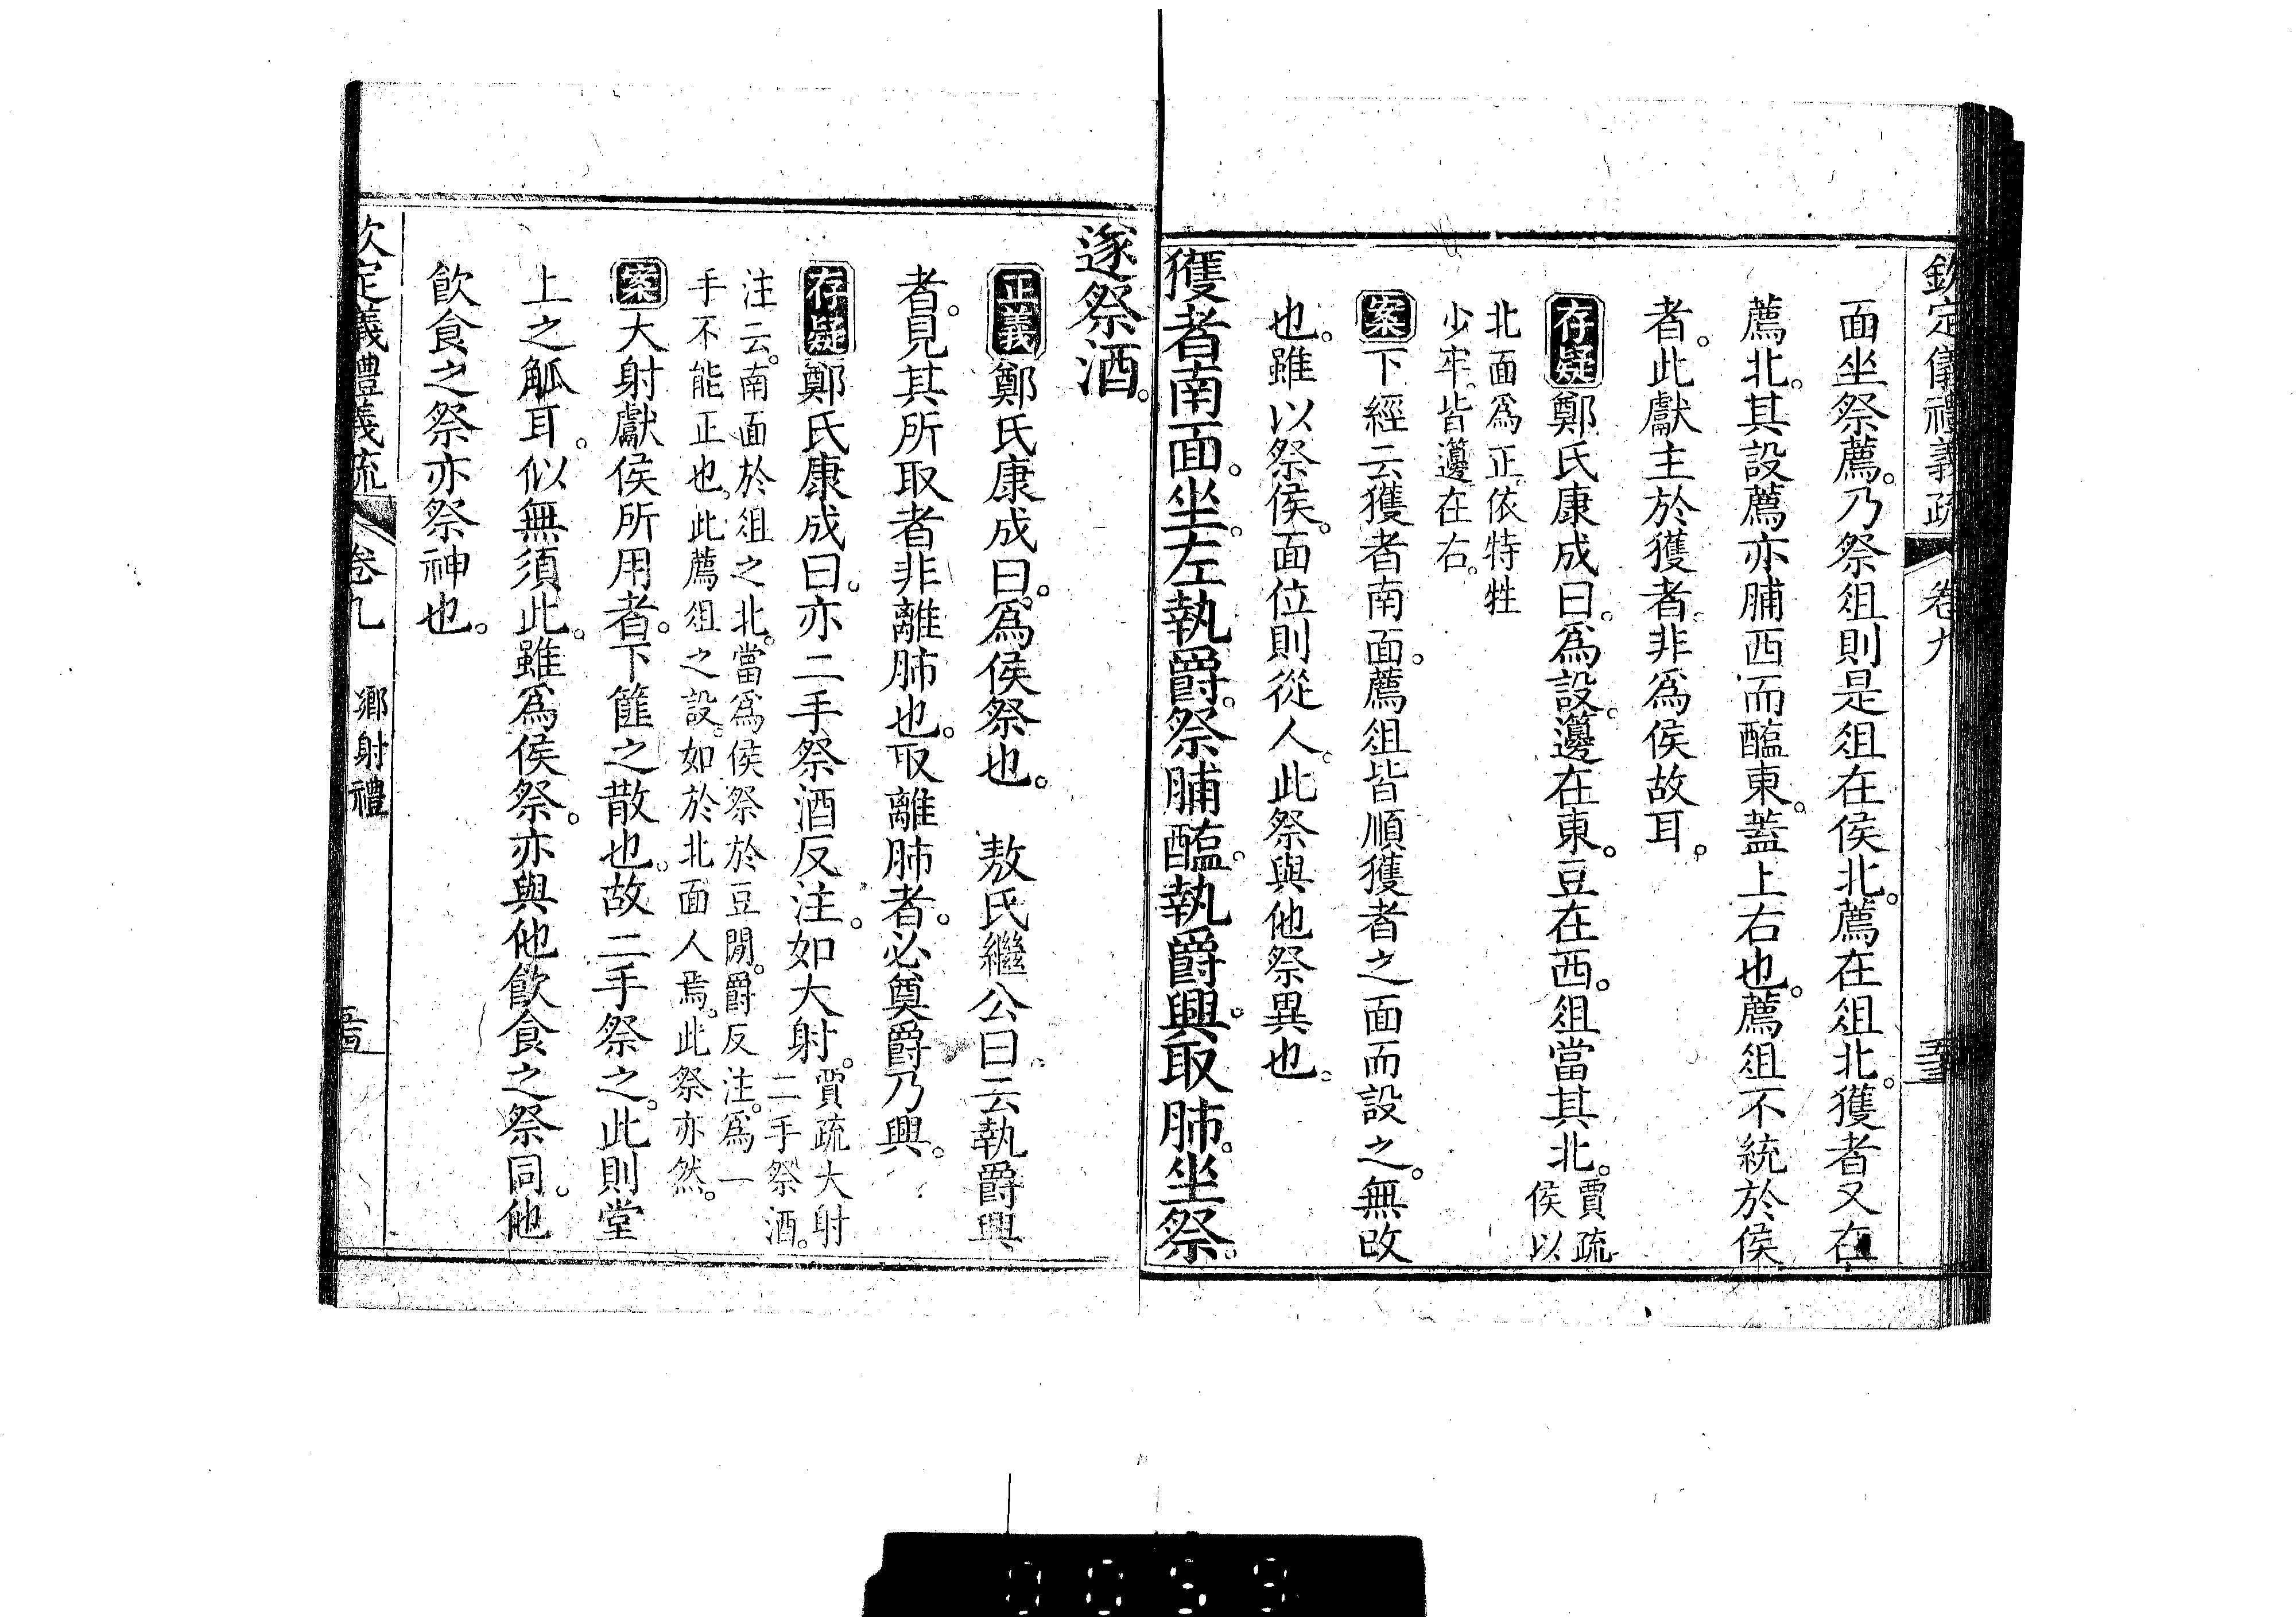 欽定儀禮義疏 卷九
面坐祭薦。乃祭俎則是俎在侯北。薦在俎北。獲者又在
薦北。其設薦亦脯西而醢東。蓋上右也。薦俎不統於侯
者。此獻主於獲者。非爲侯故耳。
存疑鄭氏康成曰。爲設。籩在東。豆在西。俎當其北。賈疏侯以
北面爲正。依特牲
少牢。皆籩在右。
案下經云獲者南面。薦俎皆順獲者之面而設之。無改
也。雖以祭侯。面位則從人。此祭與他祭異也。
獲者南面。坐。左執爵。祭脯醢。執爵興。取肺。坐祭。
遂祭酒。
正義鄭氏康成曰。爲侯祭也。 敖氏繼公曰。云執爵興
者。見其所取者非離肺也。取離肺者。必奠爵乃興。
存疑鄭氏康成曰。亦二手祭酒反注。如大射。賈疏大射二手祭酒。
注云。南面於俎之北。當爲侯祭於豆閒。爵反注。爲一
手不能正也。此薦俎之設。如於北面人焉。此祭亦然。
案大射獻侯所用者。下篚之散也。故二手祭之。此則堂
上之觚耳。似無須此。雖爲侯祭。亦與他飲食之祭同。他
飲食之祭亦祭神也。
欽定義禮義疏 卷九 鄉射禮